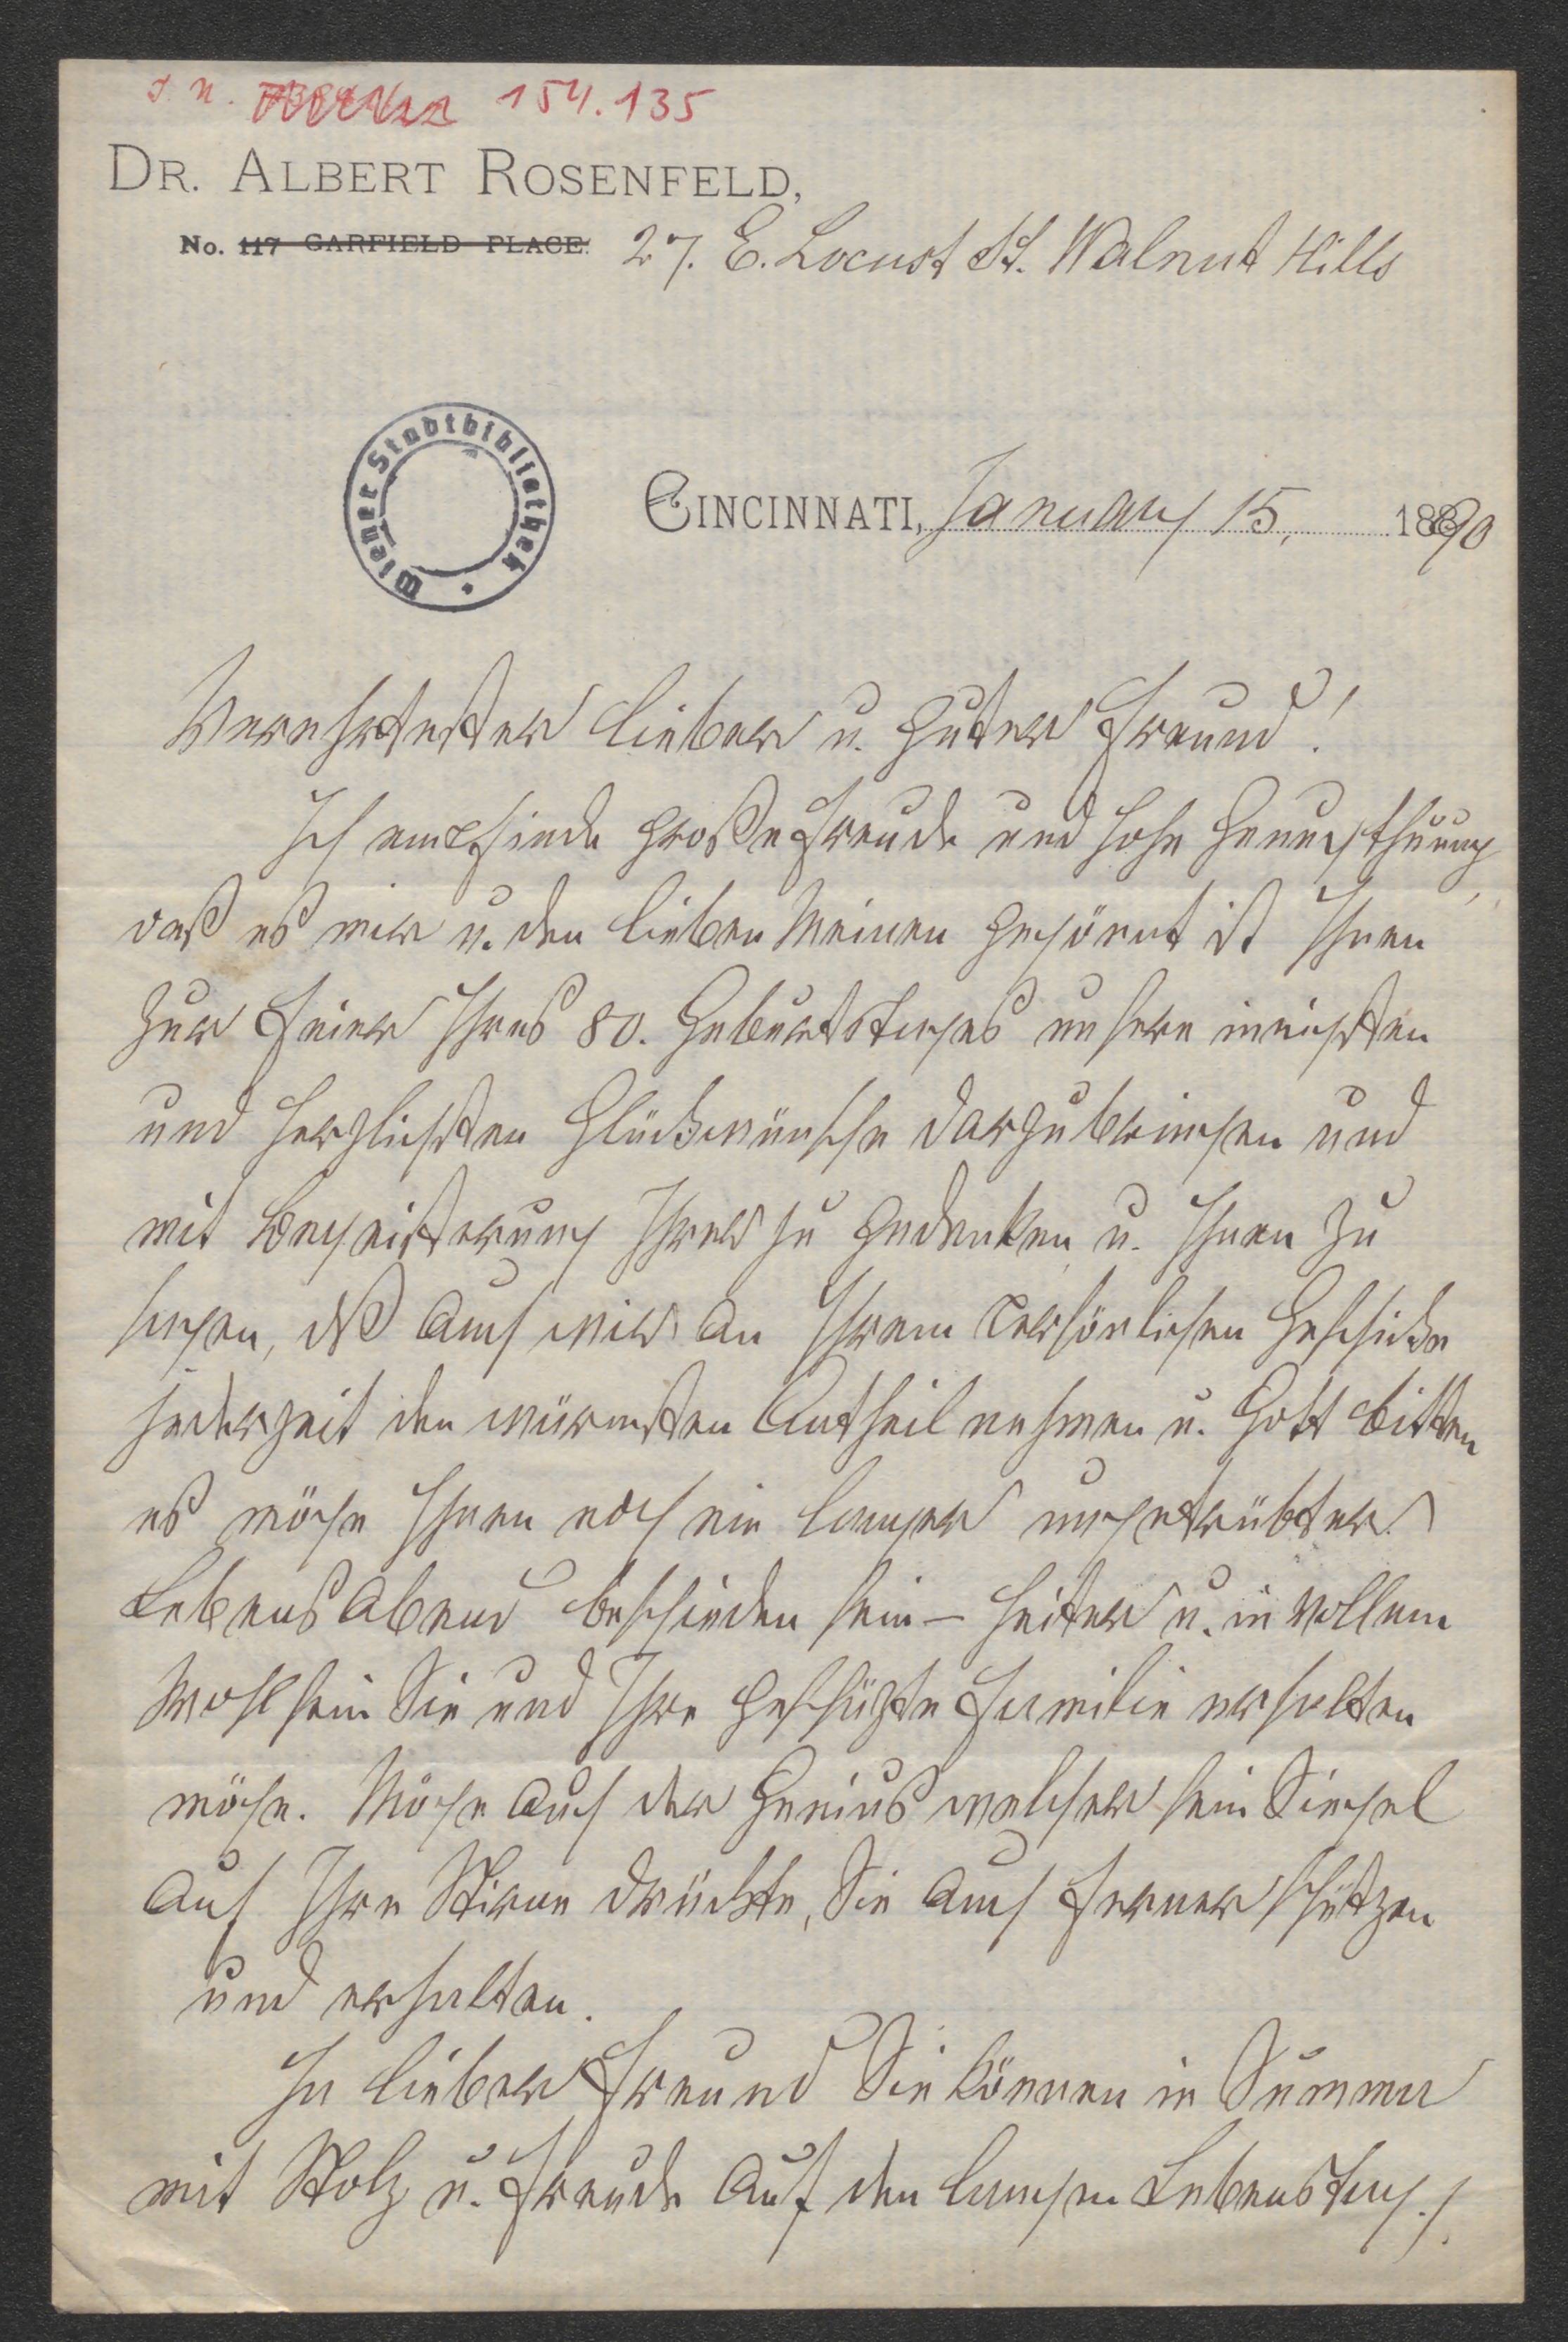 J. N. 154.135
DR. ALBERT ROSENFELD,
No. 117 GARFIELD PLACE. 27. E. Locust St. Walnut Hills
Wiener Stadtbibliothek
CINCINNATI, January 15, 1890
Verehrtester lieber u. guter Freund!
Ich empfinde große Freude und hohe Genugthuung,
daß es mir u. den lieben Meinen gegönnt ist Ihnen
zur Feier Ihres 80. Geburtstages unsere innigsten
und herzlichsten Glückwünsche darzubringen und
mit Begeisterung Ihrer zu gedenken u. Ihnen zu
sagen, dß auch wir an Ihrem persönlichen Geschicke
jederzeit den wärmsten Antheil nehmen u. Gott bitten
es möge Ihnen noch ein langer ungetrübter
Lebensabend beschieden sein – heiter u. in vollem
Wohlsein Sie und Ihre geschäzte Familie erhalten
möge. Möge auch der Genius welcher sein Siegel
auf Ihre Stirne drückte, Sie auch ferner schützen
und erhalten.
Ja lieber Freund Sie können in Summa
mit Stolz u. Freude auf den langen Lebenstag ./.